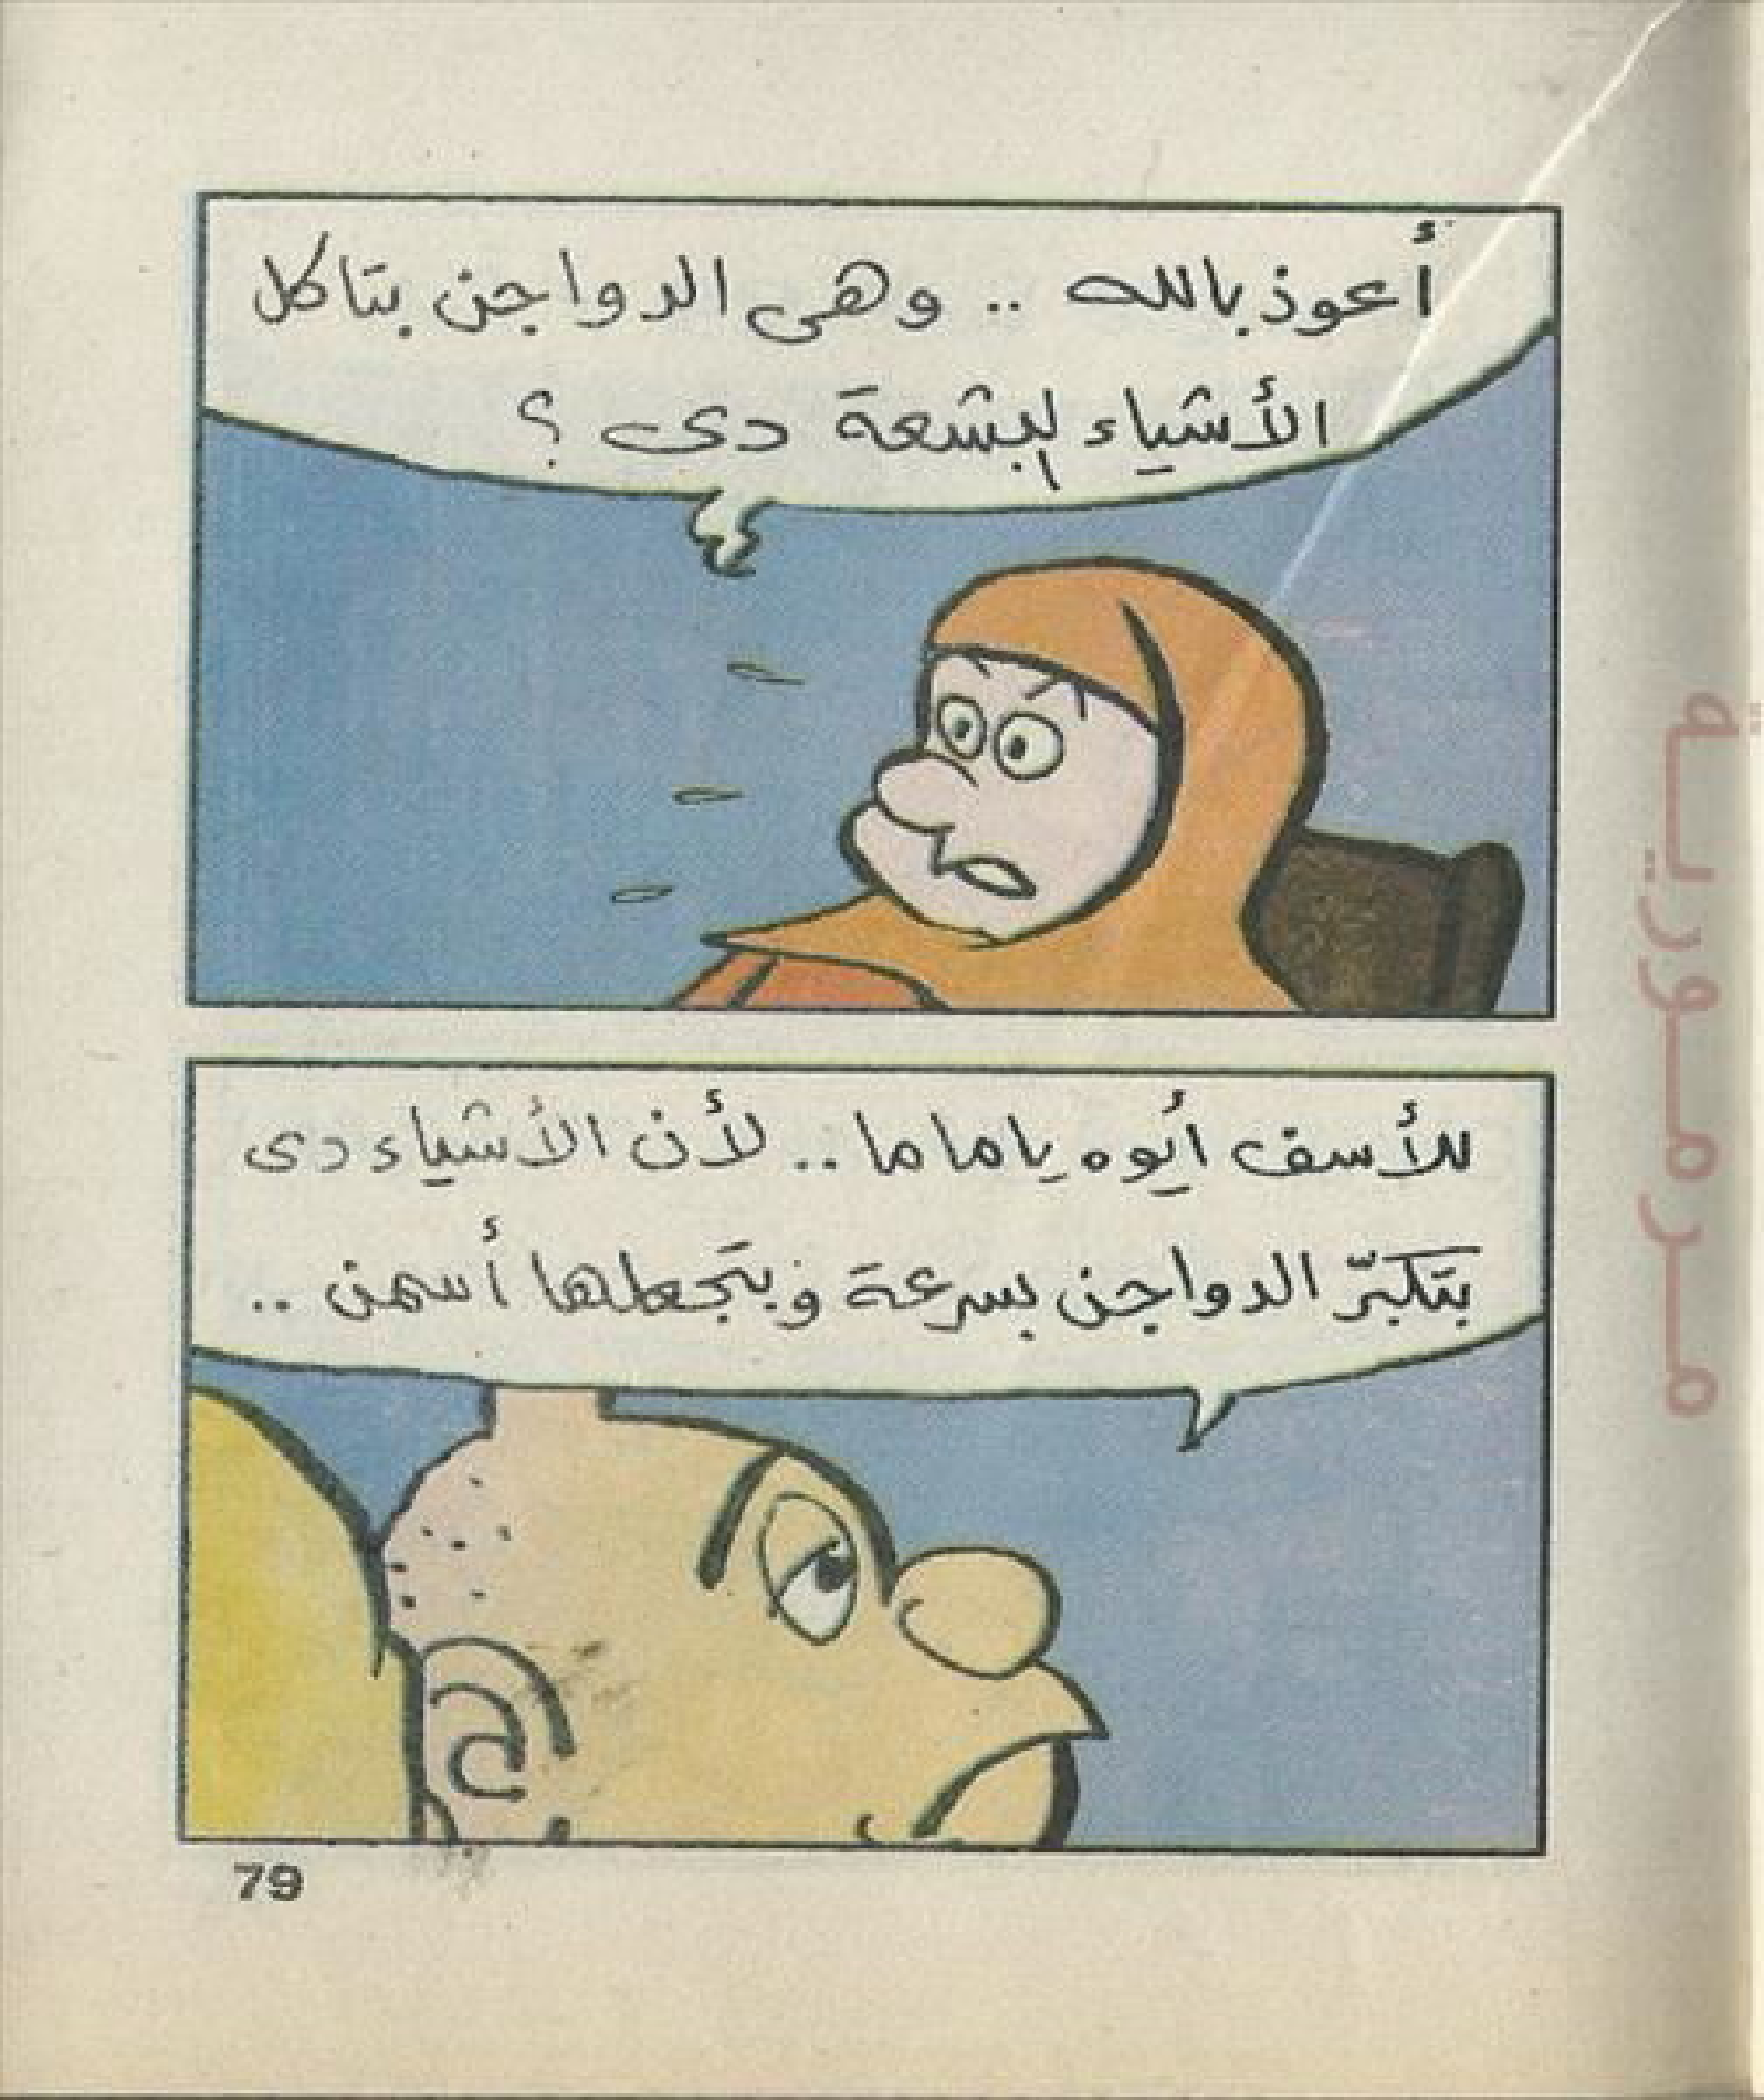 أعوذ بالله .. وهى الدواجن بتاكل
الأشياء البشعة دى ؟
للأسف أيوه ياماما .. لأن الأشياء دى
بتكبّر الدواجن بسرعة وبتجعلها أسمن ..
79
مرمورية